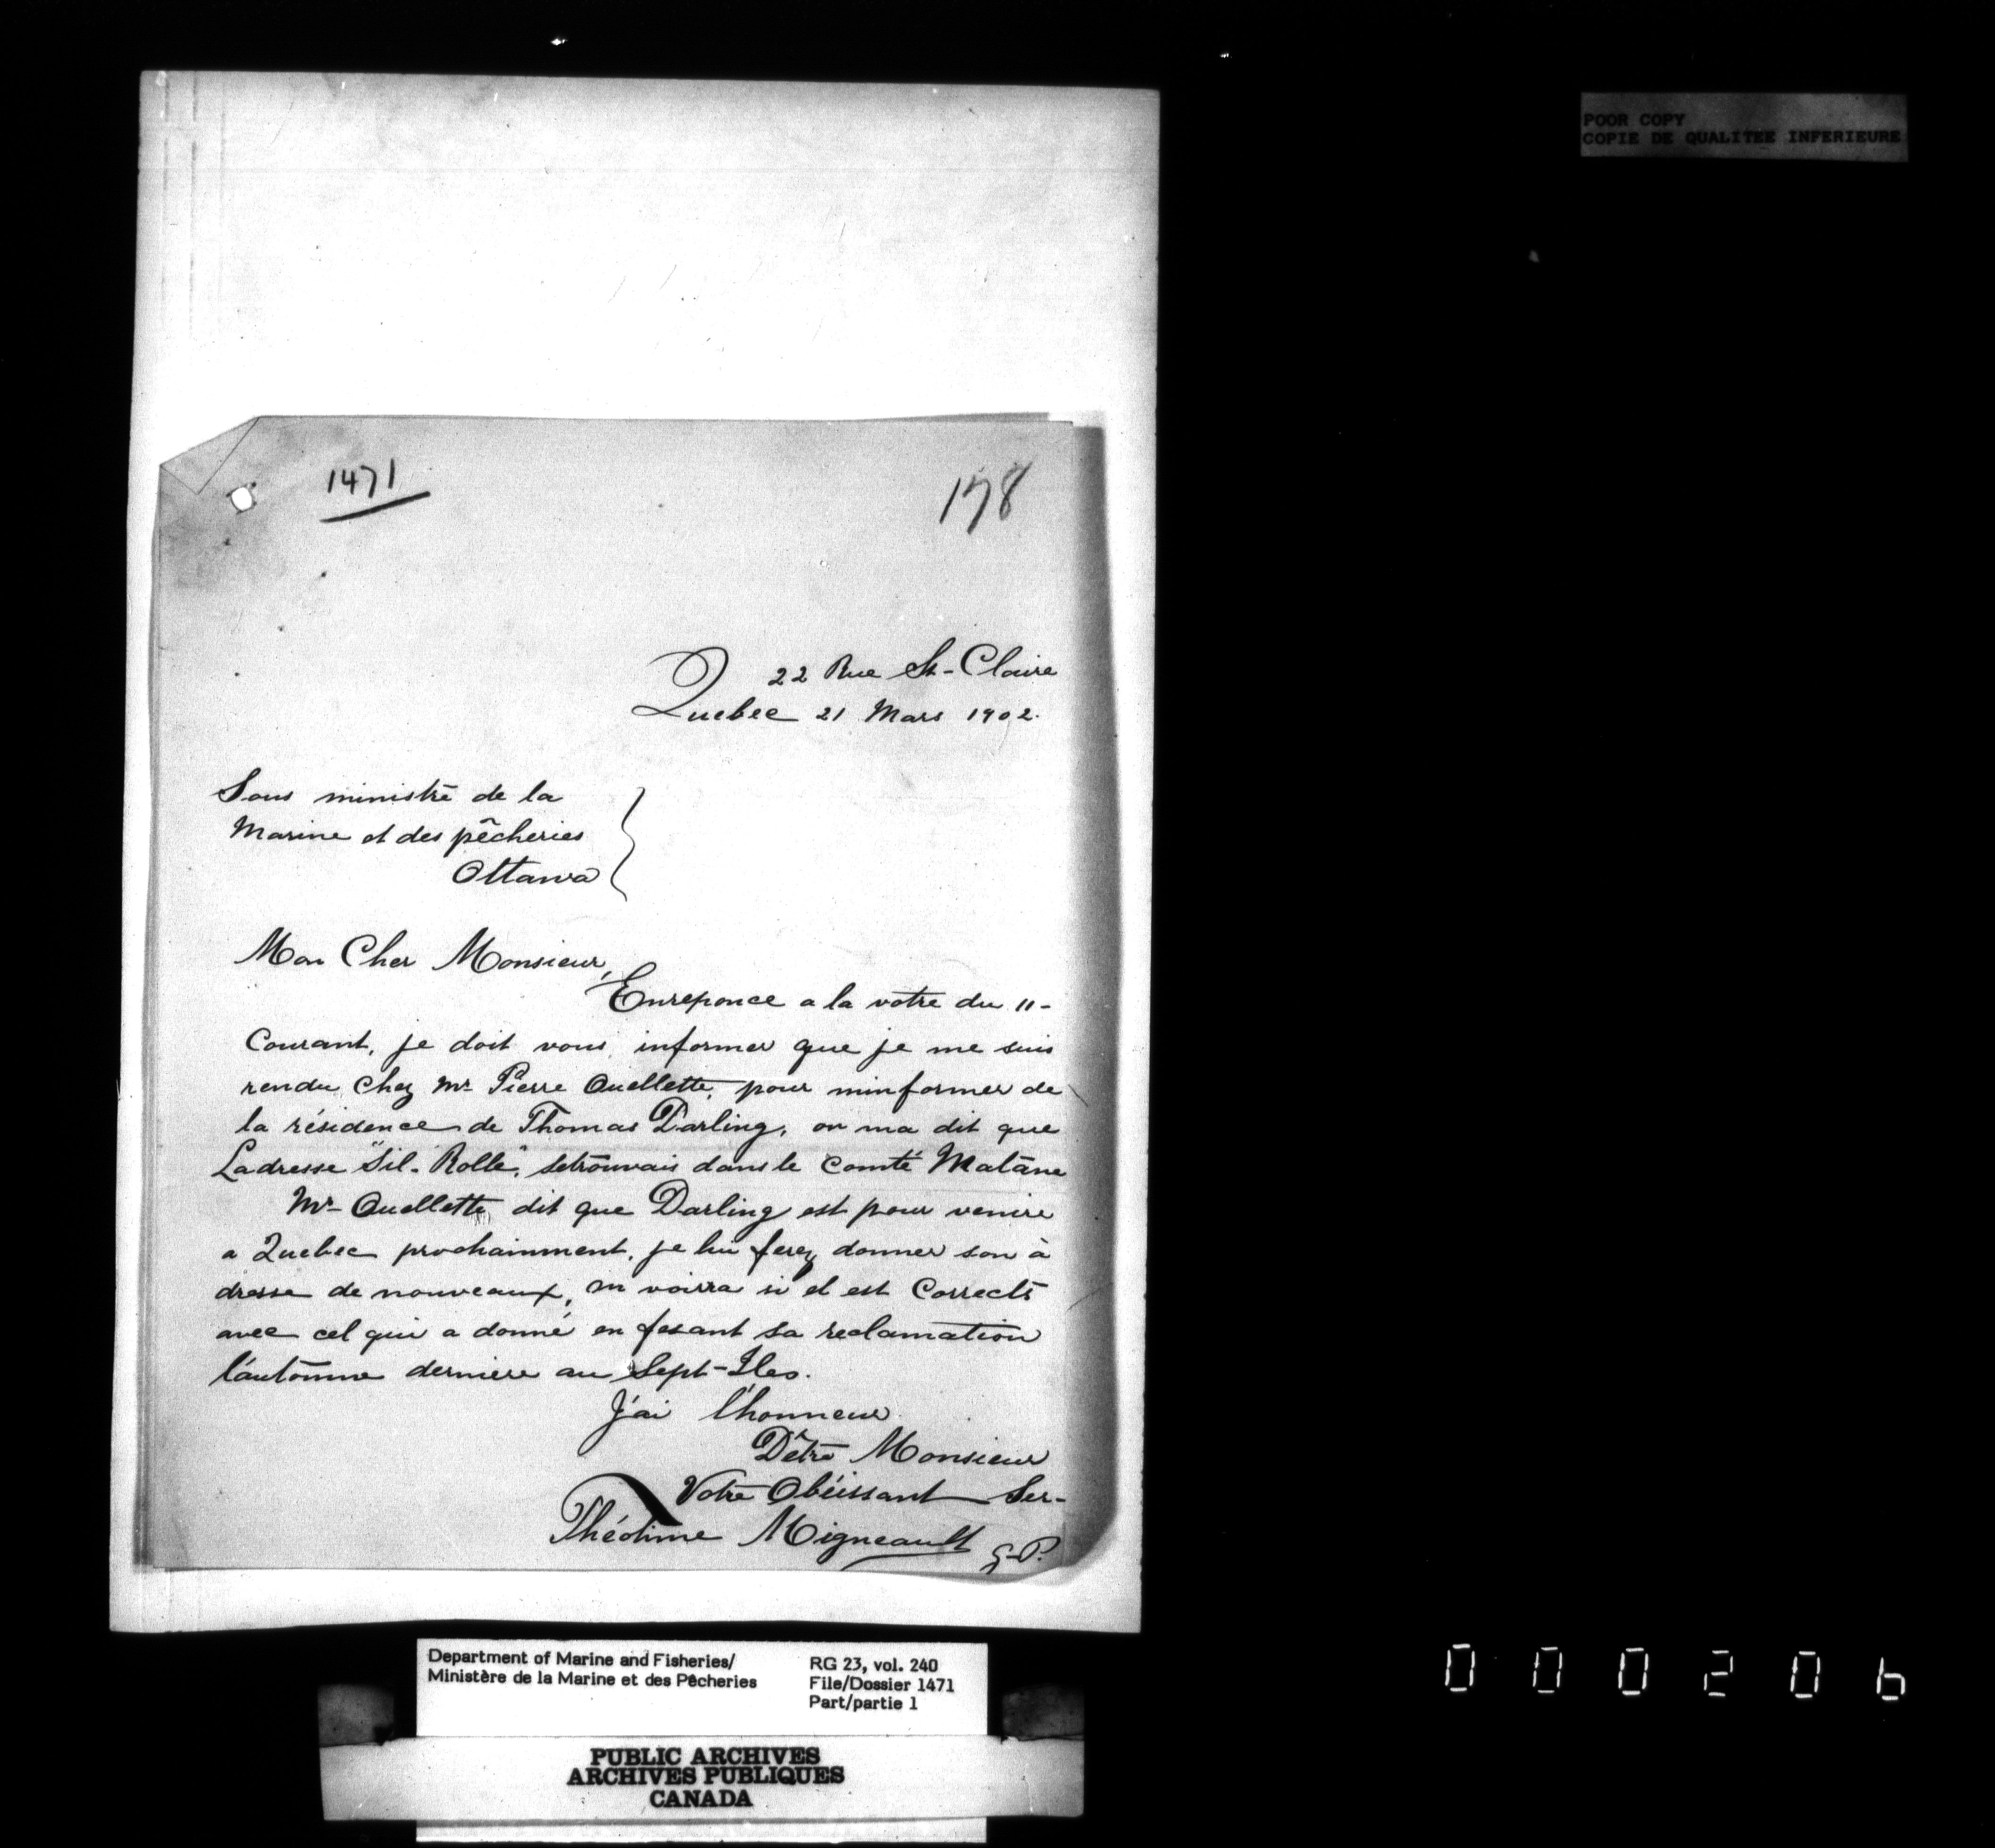 POOR COPY
COPIE DE QUALITEE INFERIEURE
1471
178
22 Rue St-Claire
Quebec 21 Mars 1902.
Sous ministre de la
Marine et des pêcheries
Ottawa
Mon Cher Monsieur,
Enreponce a la votre du 11-
Courant, je doit vous informer que je me suis
rendu chez Mr Pierre Ouellette, pour minformer de
la résidence de Thomas Darling, on ma dit que
Ladresse "Sil-Rolle", setrouvais dans le Comté Matane
Mr- Ouellette dit que Darling est pour venire
a Quebec prochainment, je lui ferez donner son à
dresse de nouveaux, on voirra si el est Corrects
avec cel qui a donné en fesant sa reclamation
l'automne derniere au Sept-Iles.
J'ai l'honneur
D'être Monsieur
Votre Obéissant Ser-
Théotime Migneault G-P.
Department of Marine and Fisheries/
Ministère de la Marine et des Pêcheries
RG 23, vol. 240
File/Dossier 1471
Part/partie 1
PUBLIC ARCHIVES
ARCHIVES PUBLIQUES
CANADA
000206